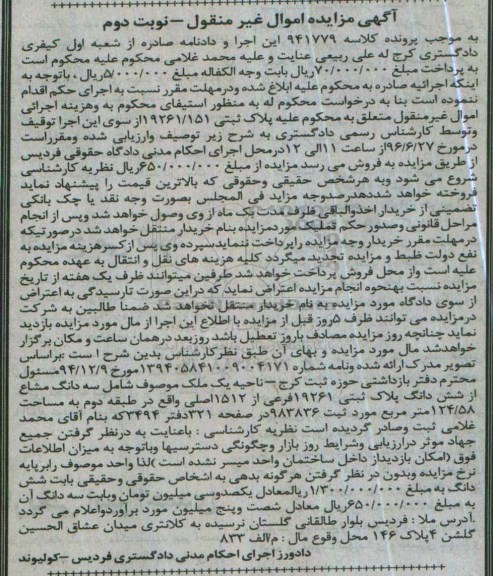 آگهی مزایده اموال غیر منقول –نوبت دوم
به موجب پرونده کلاسه ۹۴۱۷۷۹ این اجرا و دادنامه صادره از شعبه اول کیفری
دادگستری کرج له علی ربیعی عنایت و علیه محمد غلامی محکوم علیه محکوم است
به پرداخت مبلغ ۷۰/۰۰۰/۰۰۰ریال بابت وجه الکفاله مبلغ ۵/۰۰۰/۰۰۰ریال، باتوجه به
اینکه اجرائیه صادره به محکوم علیه ابلاغ شده ودرمهلت مقرر نسبت به اجرای حکم اقدام
ننموده است بنا به درخواست محکوم له به منظور استیفای محکوم به وهزینه اجرائی
اموال غیرمنقول متعلق به محکوم علیه پلاک ثبتی ۱۹۲۶۱/۱۵۱از سوی این اجرا توقیف
وتوسط کارشناس رسمی دادگستری به شرح زیر توصیف وارزیابی شده ومقرراست
درمورخ ۹۶/۶/۲۷از ساعت ۱۱الی ۱۲درمحل اجرای احکام مدنی دادگاه حقوقی فردیس
از طریق مزایده به فروش می رسد مزایده از مبلغ ۶۵۰/۰۰۰/۰۰۰ریال نظریه کارشناسی
شروع می شود وبه هرشخص حقیقی وحقوقی که بالاترین قیمت را پیشنهاد نماید
فروخته خواهد شددهدرصدوجه مزاید فی المجلس بصورت وجه نقد یا چک بانکی
تضمینی از خریدار اخذوالباقی ظرف مدت یک ماه از وی وصول خواهد شد وپس از انجام
مراحل قانونی وصدور حکم تملیک موردمزایده بنام خریدار منتقل خواهد شد درصورتیکه
درمهلت مقرر خریدار وجه مزایده راپرداخت ننمایدسپرده وی پس از کسر هزینه مزایده به
نفع دولت ظبط و مزایده تجدید میگردد کلیه هزینه های نقل و انتقال به عهده محکوم
علیه است واز محل فروش پرداخت خواهد شد طرفین میتوانند ظرف یک هفته از تاریخ
مزایده نسبت بهنحوه انجام مزایده اعتراض نماید که دراین صورت تارسیدگی به اعتراض
از سوی دادگاه مورد مزایده به نام خریدار منتقل نخواهد شد ضمنا طالبین به شرکت
درمزایده می توانند ظرف ۵روز قبل از مزایده با اطلاع این اجرا از مال مورد مزایده بازدید
نماید چنانچه روز مزایده مصادف باروز تعطیل باشد روزبعد درهمان ساعت و مکان برگزار
خواهدشد مال مورد مزایده و بهای آن طبق نظرکارشناس بدین شرح ا ست :براساس
تصویر مدرک ارائه شده ونامه شماره ۱۳۹۴۰۵۸۴۱۰۰۹۰۰۴۱۷۱مورخ ۹۴/۱۲/۹مسئول
محترم دفتر بازداشتی حوزه ثبت کرج –ناحیه یک ملک موصوف شامل سه دانگ مشاع
از شش دانگ پلاک ثبتی ۱۹۲۶۱فرعی از ۱۵۱۲اصلی واقع در طبقه دوم به مساحت
۱۲۴/۵۸متر مربع مورد ثبت ۹۸۳۸۳۶در صفحه ۳۲۱دفتر ۳۴۹۴که بنام آقای محمد
غلامی ثبت وصادر گردیده است نظریه کارشناسی : باعنایت به درنظر گرفتن جمیع
جهاد موثر درارزیابی وشرایط روز بازار وچگونگی دسترسیها وباتوجه به میزان اطلاعات
فوق (امکان بازدیداز داخل ساختمان واحد میسر نشده است )لذا واحد موصوف رابرپایه
نرخ مزایده وبدون در نظر گرفتن هرگونه بدهی به اشخاص حقوقی وحقیقی بابت شش
دانگ به مبلغ ۱/۳۰۰/۰۰۰/۰۰۰ریالمعادل یکصدوسی میلیون تومان وبابت سه دانگ آن
به مبلغ ۶۵۰/۰۰۰/۰۰۰ریال معادل شصت وپنج میلیون مورد برآوردواعلام می گردد
.آدرس ملا : فردیس بلوار طالقانی گلستان نرسیده به کلانتری میدان عشاق الحسین
گلشن ۴پلاک ۱۴۶ محل وقوع مال : م/الف ۸۳۳
دادورز اجرای احکام مدنی دادگستری فردیس –کولیوند